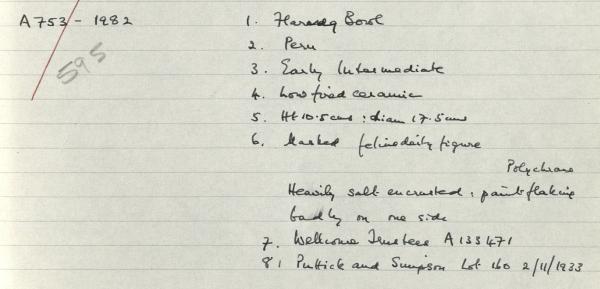 A753-1982
595
1. Flaring Bowl
2. Peru
3. Early Intermediate
4. Low fired ceramic
5. Ht 10.5cms : diam 17.5cms
6. Masked feline deity figure
Polychrome
Heavily salt encrusted : paint flaking
badly on one side
7. Wellcome Trustees A133471
8. Puttick and Simpson Lot 160 2/11/1933